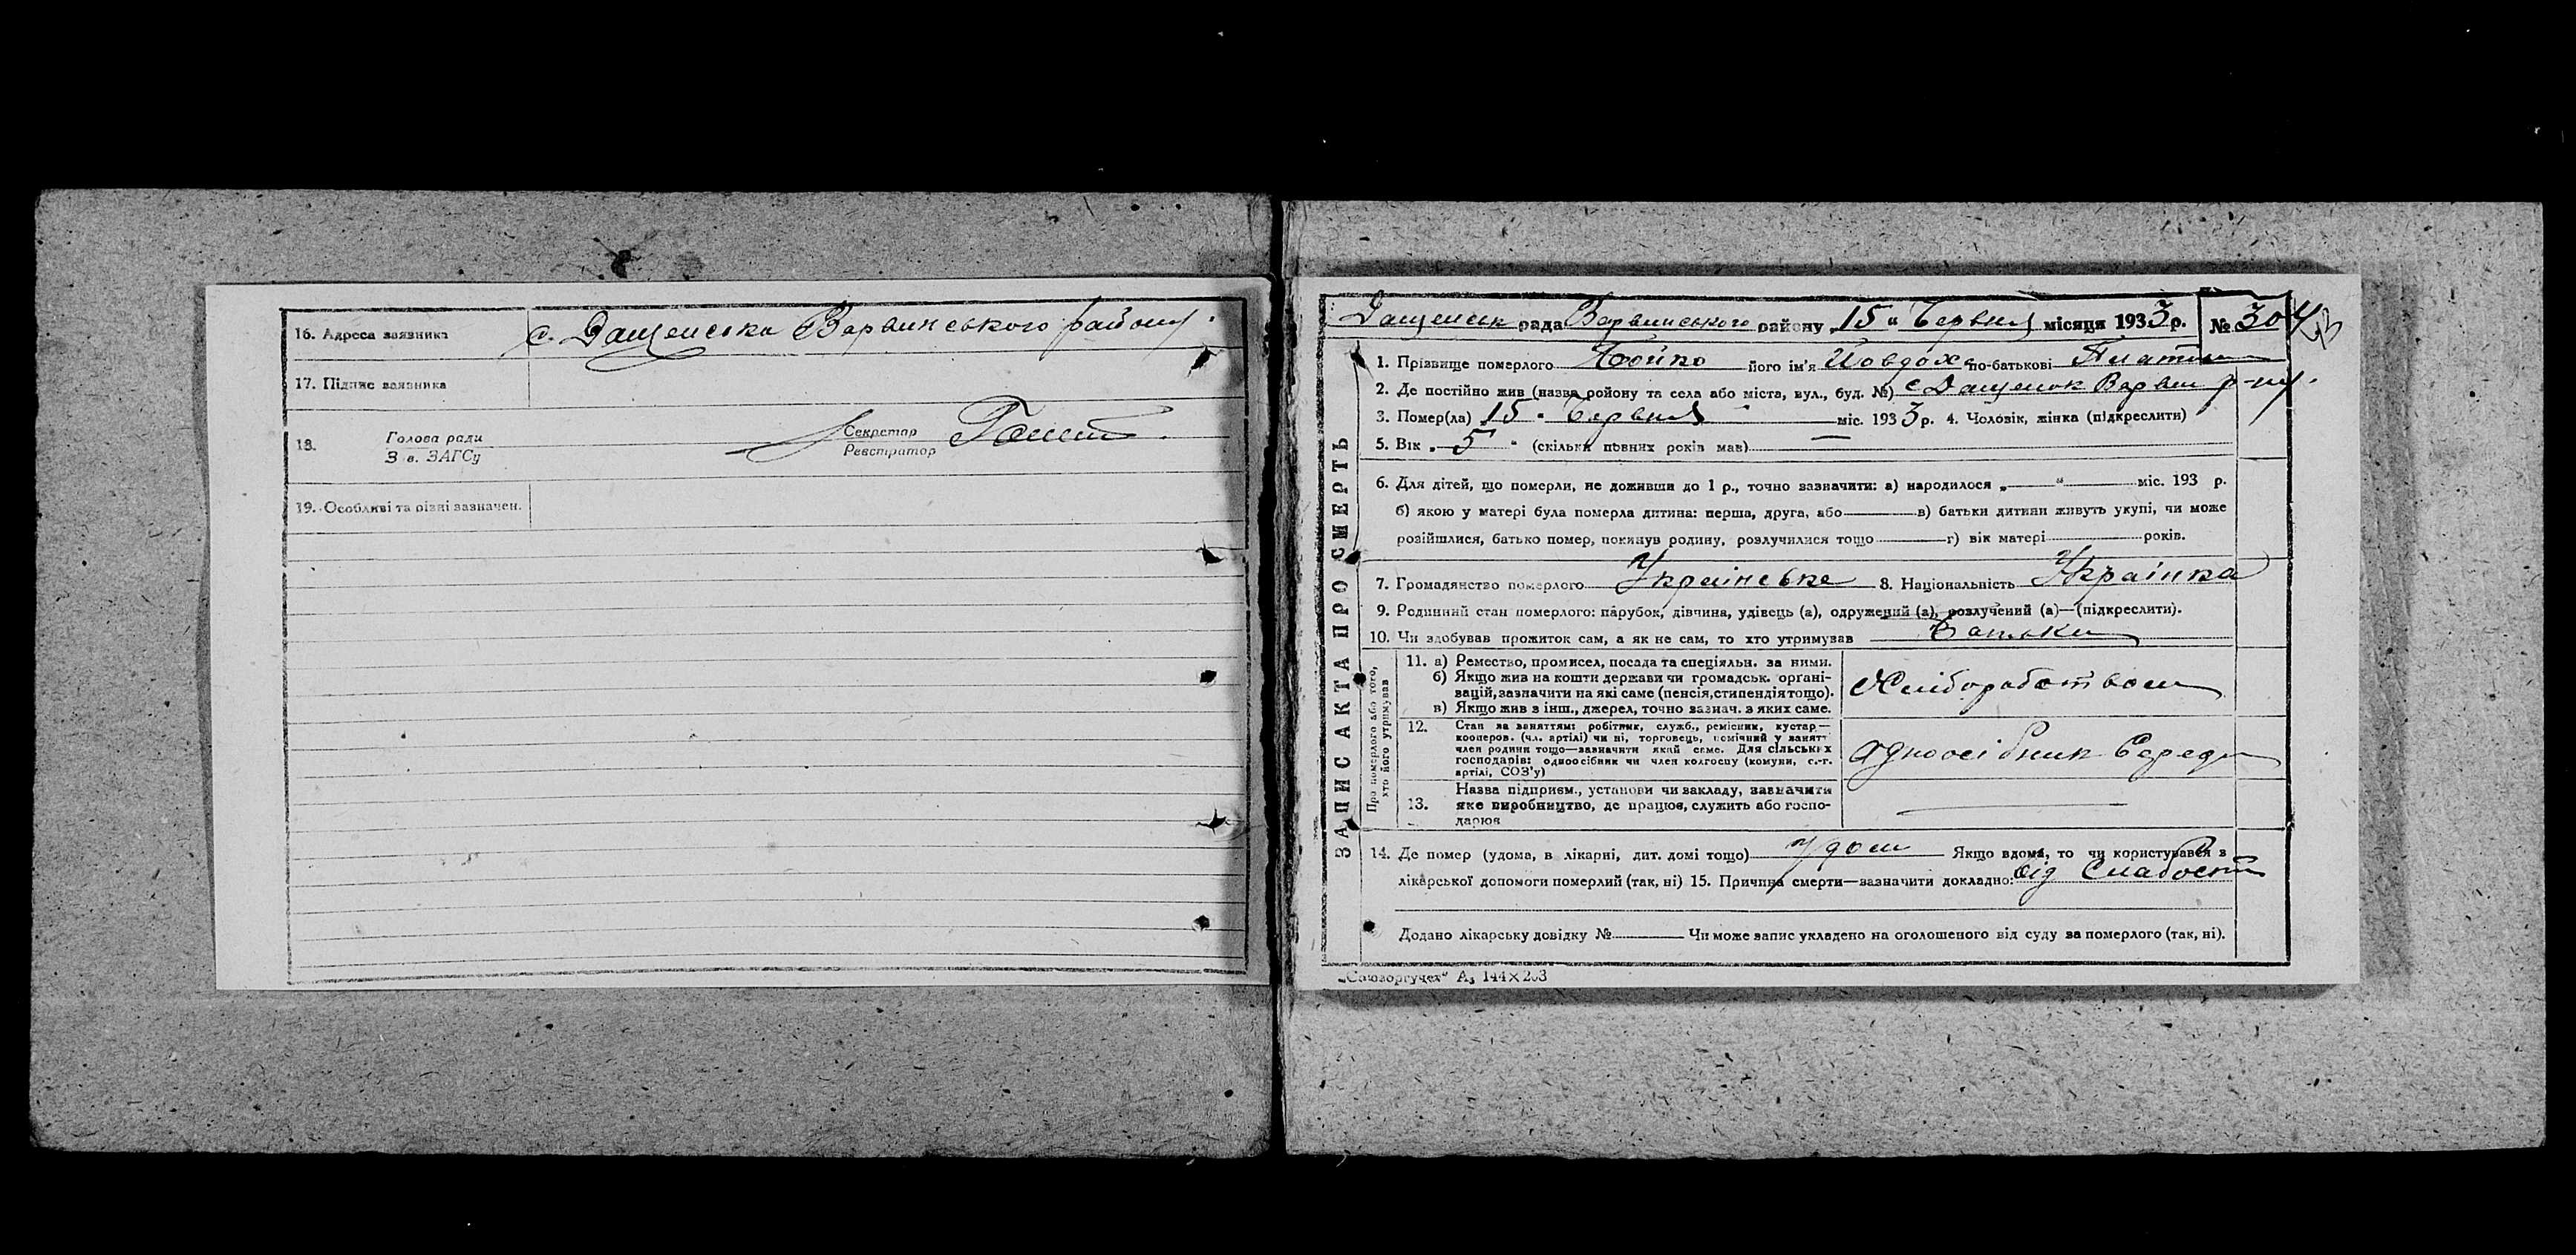 16. Адреса заявника с. Дащенська Варвинського району.
17. Підпис заявника
18. Голова ради Секретар
З в. ЗАГСу Реєстратор
19. Особливі та різні зазначен.
Дащенськ рада Варвинського району „15" Червня місяця 1933 р. № 304
ЗАПИС АКТА ПРО СМЕРТЬ
1. Прізвище померлого Бойко його ім'я Иовдоха по-батькові
2. Де постійно жив (назва району та села або міста, вул., буд. №) с Дащенок Варвин р-ну.
3. Помер(ла) „15" Червня міс. 1933 р. 4. Чоловік, жінка (підкреслити)
5. Вік „5" (скільки повних років мав)
6. Для дітей, що померли, не доживши до 1 р., точно зазначити: а) народилося „ " міс. 193 р.
б) якою у матері була померла дитина: перша, друга, або в) батьки дитини живуть укупі, чи може
розійшлися, батько помер, покинув родину, розлучилися тощо г) вік матері років.
7. Громадянство померлого Українське 8. Національність Українка
9. Родинний стан померлого: парубок, дівчина, удівець (а), одружений (а), розлучений (а)—(підкреслити).
10. Чи здобував прожиток сам, а як не сам, то хто утримував Батьки
Про померлого або того, хто його утримував
11. а) Ремество, промисел, посада та спеціяльн. за ними.
б) Якщо жив на кошти держави чи громадськ. органі-
вацій, зазначити на які саме (пенсія, стипендія тощо).
в) Якщо жив з інш., джерел, точно зазнач. з яких саме.
Хліборобством
12. Стан за заняттям: робітник, служб., ремісник, кустар—
кооперов. (чл. артілі) чи ні, торговець, помічний у занятт
член родини тощо—зазначити який саме. Для сільських
господарів: одноосібник чи член колгоспу (комуни, с.-г.
артілі, СОЗ'у)
Одноосібник Середн
13. Назва підприєм., установи чи закладу, зазначити
яке виробництво, де працює, служить або госпо-
дарює
14. Де помер (удома, в лікарні, дит. домі тощо) Удом Якщо вдома, то чи користувався з
лікарської допомоги померлий (так, ні) 15. Причина смерти—зазначити докладно: від Слабости
Додано лікарську довідку № Чи може запис укладено на оголошеного від суду за померлого (так, ні).
„Союзоргучет" А₃ 144×203